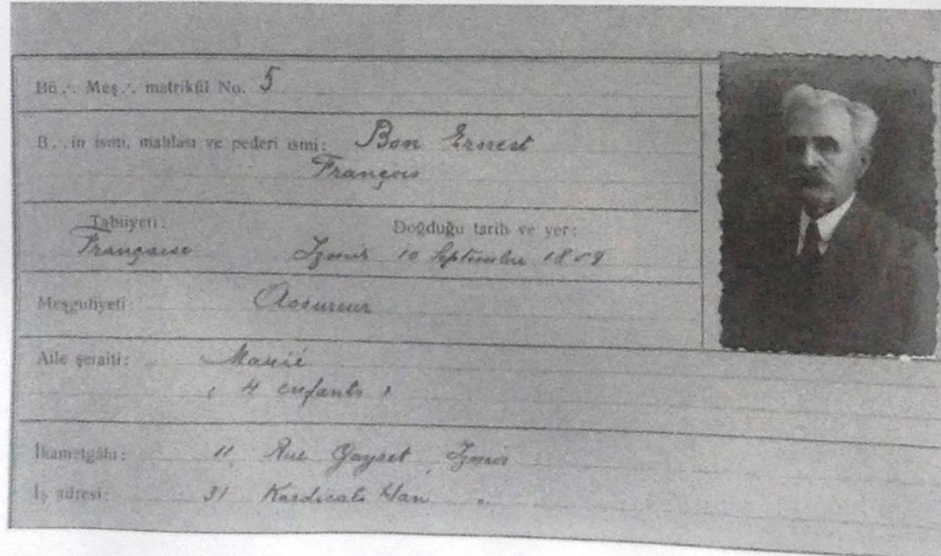 Bü∴ Meş∴ matrikül No. 5
B∴in ismi, mahlası ve pederi ismi: Bon Ernest
François
Tabiiyeti: Doğduğu tarih ve yer:
Française Izmir 10 Septembre 18
Meşguliyeti: Assureur
Aile şeraiti: Marié
( 4 enfants )
İkametgâhı: 11, Rue Gayret, Izmir
İş adresi: 31 Kardicali Han "